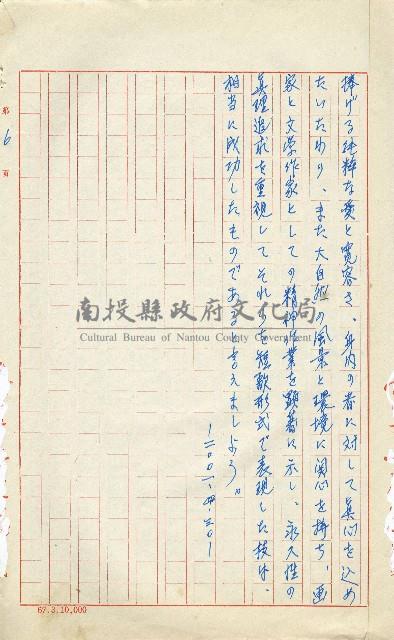 捧げる純粋な愛と寛容さ、身内の者に対して真心を込め
たいたわり、また大自然の風景と環境に関心を持ち、画
家と文学作家としての精神作業を顕著に示し、永久性の
真理追求を重視してそれを短歌形式で表現した技は、
相当に成功したものであると言えましょう。
第6頁
南投縣政府文化局
Cultural Bureau of Nantou County Government
67.3.10,000